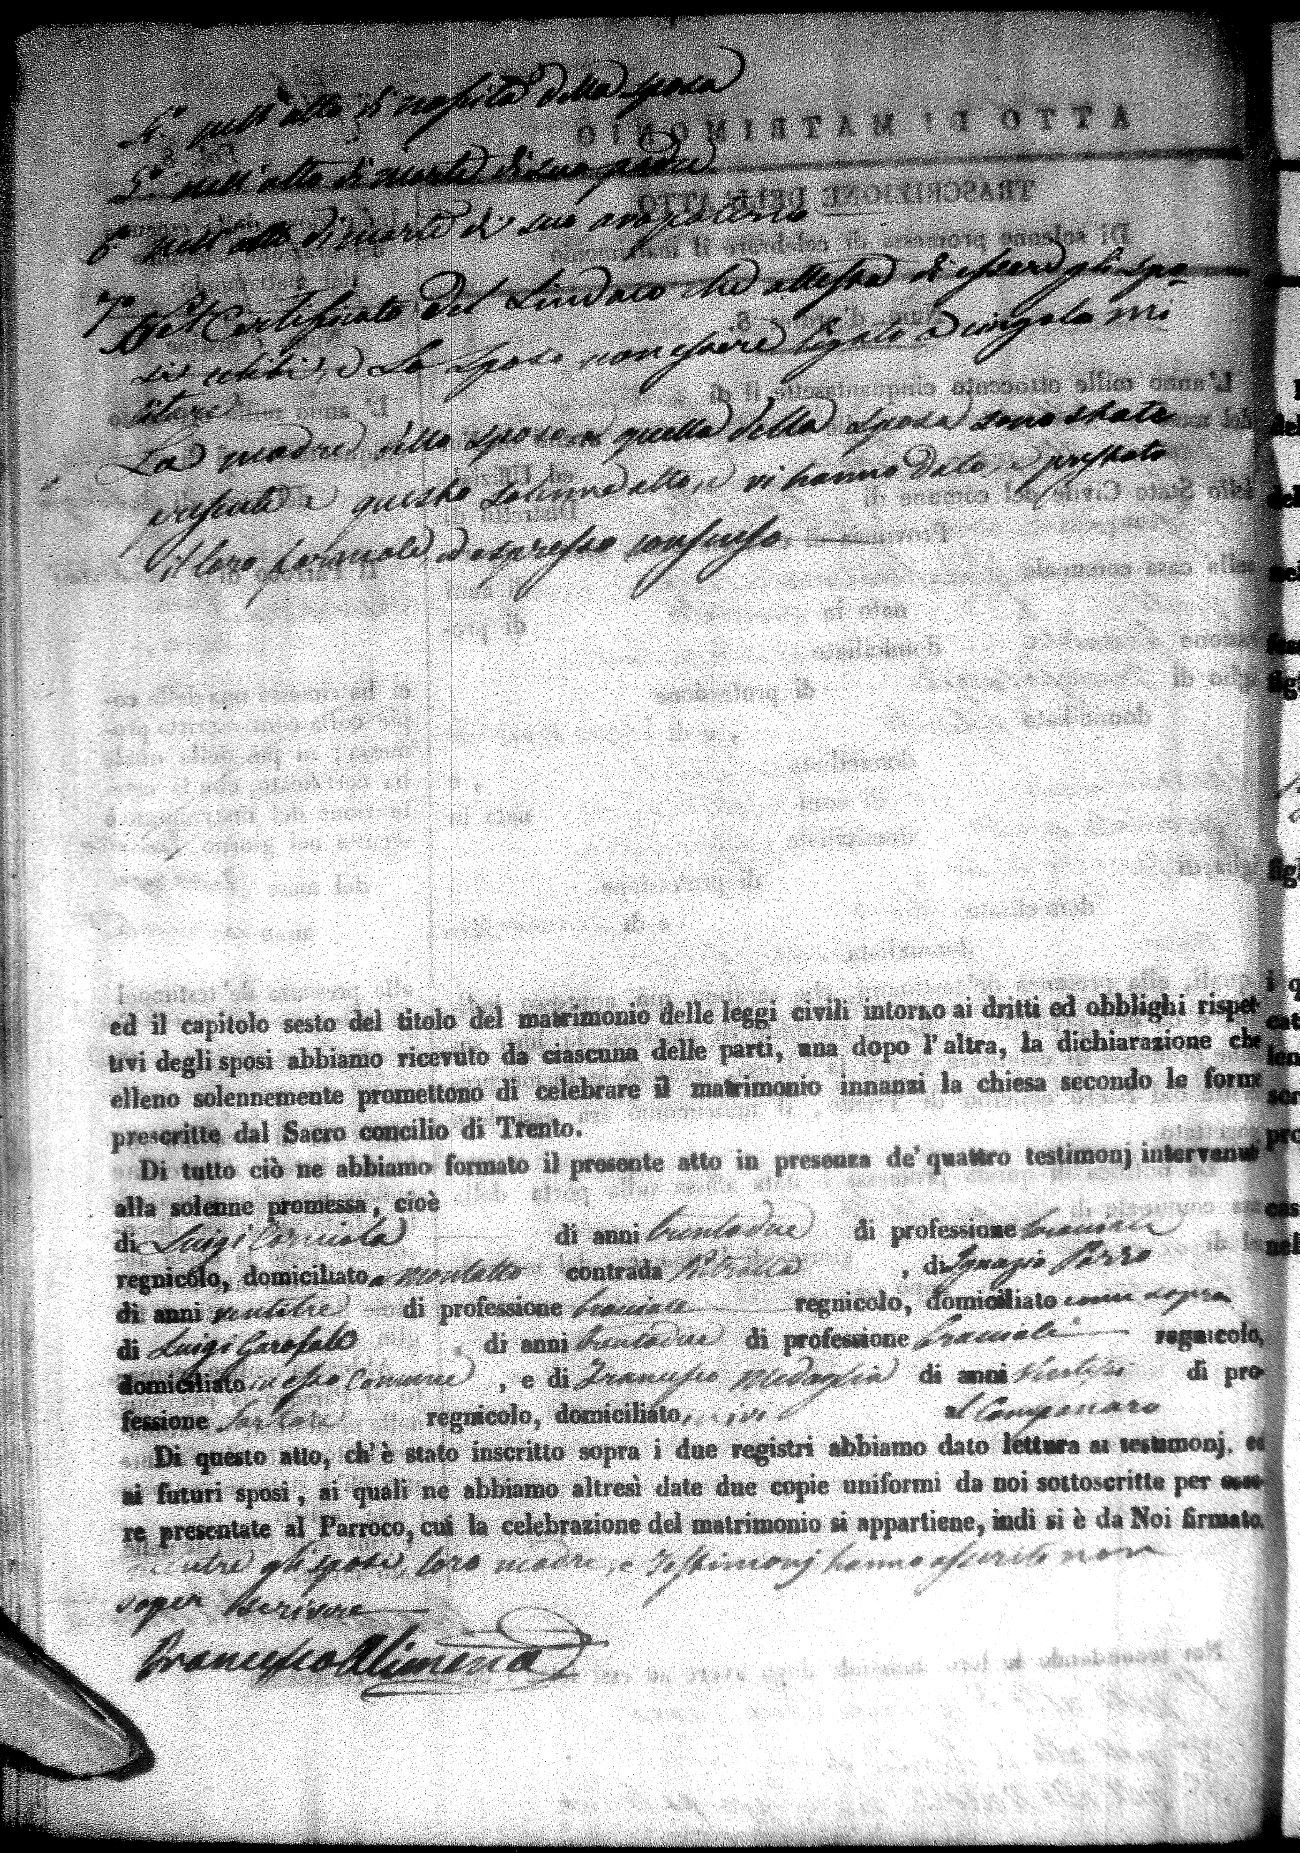 4.° nell'atto di nascita della sposa
5.° nell'atto di morte di suo padre
6.° nell'atto di morte di suo avo paterno
7.° Nel Certificato del Sindaco che attesta di essere gli spo-
si celibi, e lo sposo non essere legato a cingolo mi
litare
La madre dello sposo e quella della sposa sono state
presenti a questo solenne atto, e vi hanno dato, e prestato
il loro formale, ed espresso consenso
ed il capitolo sesto del titolo del matrimonio delle leggi civili intorno ai dritti ed obblighi rispet-
tivi degli sposi abbiamo ricevuto da ciascuna delle parti, una dopo l'altra, la dichiarazione che
elleno solennemente promettono di celebrare il matrimonio innanzi la chiesa secondo le forme
prescritte dal Sacro concilio di Trento.
Di tutto ciò ne abbiamo formato il presente atto in presenza de' quattro testimonj intervenuti
alla solenne promessa, cioè
di Luigi di anni trentadue di professione bracciale
regnicolo, domiciliato a Montalto contrada , di Ignazio Parro
di anni ventitre di professione bracciale regnicolo, domiciliato come sopra
di Luigi Garofalo , di anni trentadue di professione bracciale regnicolo,
domiciliato in esso Comune , e di Francesco Medaglia di anni di pro-
fessione regnicolo, domiciliato ivi
Di questo atto, ch'è stato inscritto sopra i due registri abbiamo dato lettura ai testimonj, ed
ai futuri sposi, ai quali ne abbiamo altresì date due copie uniformi da noi sottoscritte per esse-
re presentate al Parroco, cui la celebrazione del matrimonio si appartiene, indi si è da Noi firmato,
mentre gli sposi, loro madre, e testimonj hanno asserito non
saper scrivere
Francesco Alimena